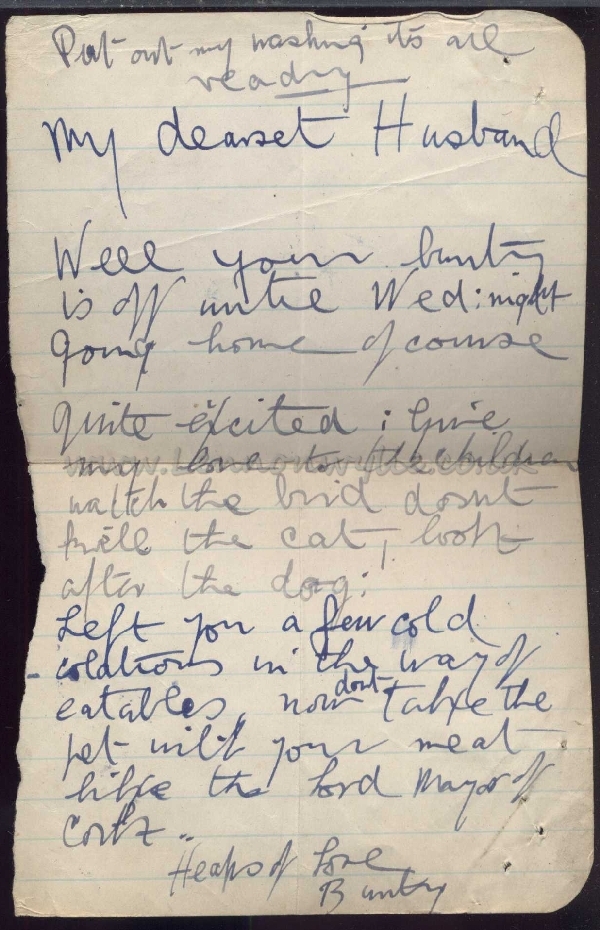 Put out my washing its all
ready
My dearset Husband
Well your bunty
is off until Wed: night
going home of course
quite exicted ; Give
my love to the children
watch the bird dosnt
kill the cat, look
after the dog:
Left you a few cold
in the way of
eatables, now dont take the
pet with your meat
like the Lord Mayor of
Cork..
Heaps of Love
Bunty